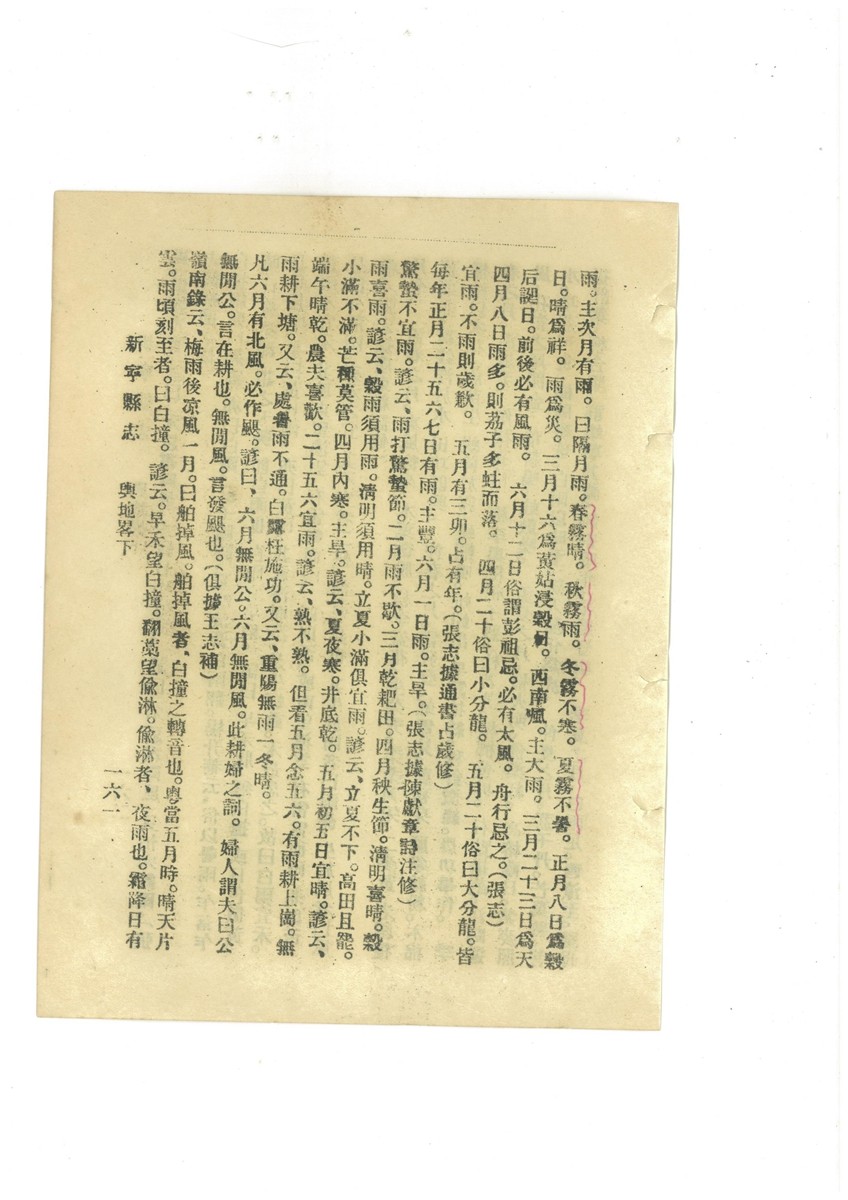 雨。主次月有雨。曰隔月雨。春霧晴。秋霧雨。冬霧不寒。夏霧不暑。正月八日為穀
日。晴為祥。雨為災。三月十六為黃姑浸穀日。西南風。主大雨。三月二十三日為天
后誕日。前後必有風雨。六月十二日俗謂彭祖忌。必有太風。舟行忌之。(張志)
四月八日雨多。則荔子多蛀而落。四月二十俗曰小分龍。五月二十俗曰大分龍。皆
宜雨。不雨則歲歉。五月有三卯。占有年。(張志據通書占歲修)
每年正月二十五六七日有雨。主豐。六月一日雨。主旱。(張志據陳獻章詩注修)
驚蟄不宜雨。諺云、雨打驚蟄節。二月雨不歇。三月乾耙田。四月秧生節。清明喜晴。穀
雨喜雨。諺云、穀雨須用雨。清明須用晴。立夏小滿俱宜雨。諺云、立夏不下。高田且罷。
小滿不滿。芒種莫管。四月內寒。主旱。諺云、夏夜寒。井底乾。五月初五日宜晴。諺云、
端午晴乾。農夫喜歡。二十五六宜雨。諺云、熟不熟。但看五月念五六。有雨耕上崗。無
雨耕下塘。又云、處暑雨不通。白露枉施功。又云、重陽無雨一冬晴。
凡六月有北風。必作颶。諺曰、六月無閒公。六月無閒風。此耕婦之詞。婦人謂夫曰公
無閒公。言在耕也。無閒風。言發颶也。(俱據王志補)
嶺南錄云、梅雨後凉風一月。曰舶掉風。舶掉風者、白撞之轉音也。粵當五月時。晴天片
雲。雨頃刻至者。曰白撞。諺云。早禾望白撞。翻藁望偷淋。偷淋者、夜雨也。霜降日有
新寧縣志 輿地畧下 一六一